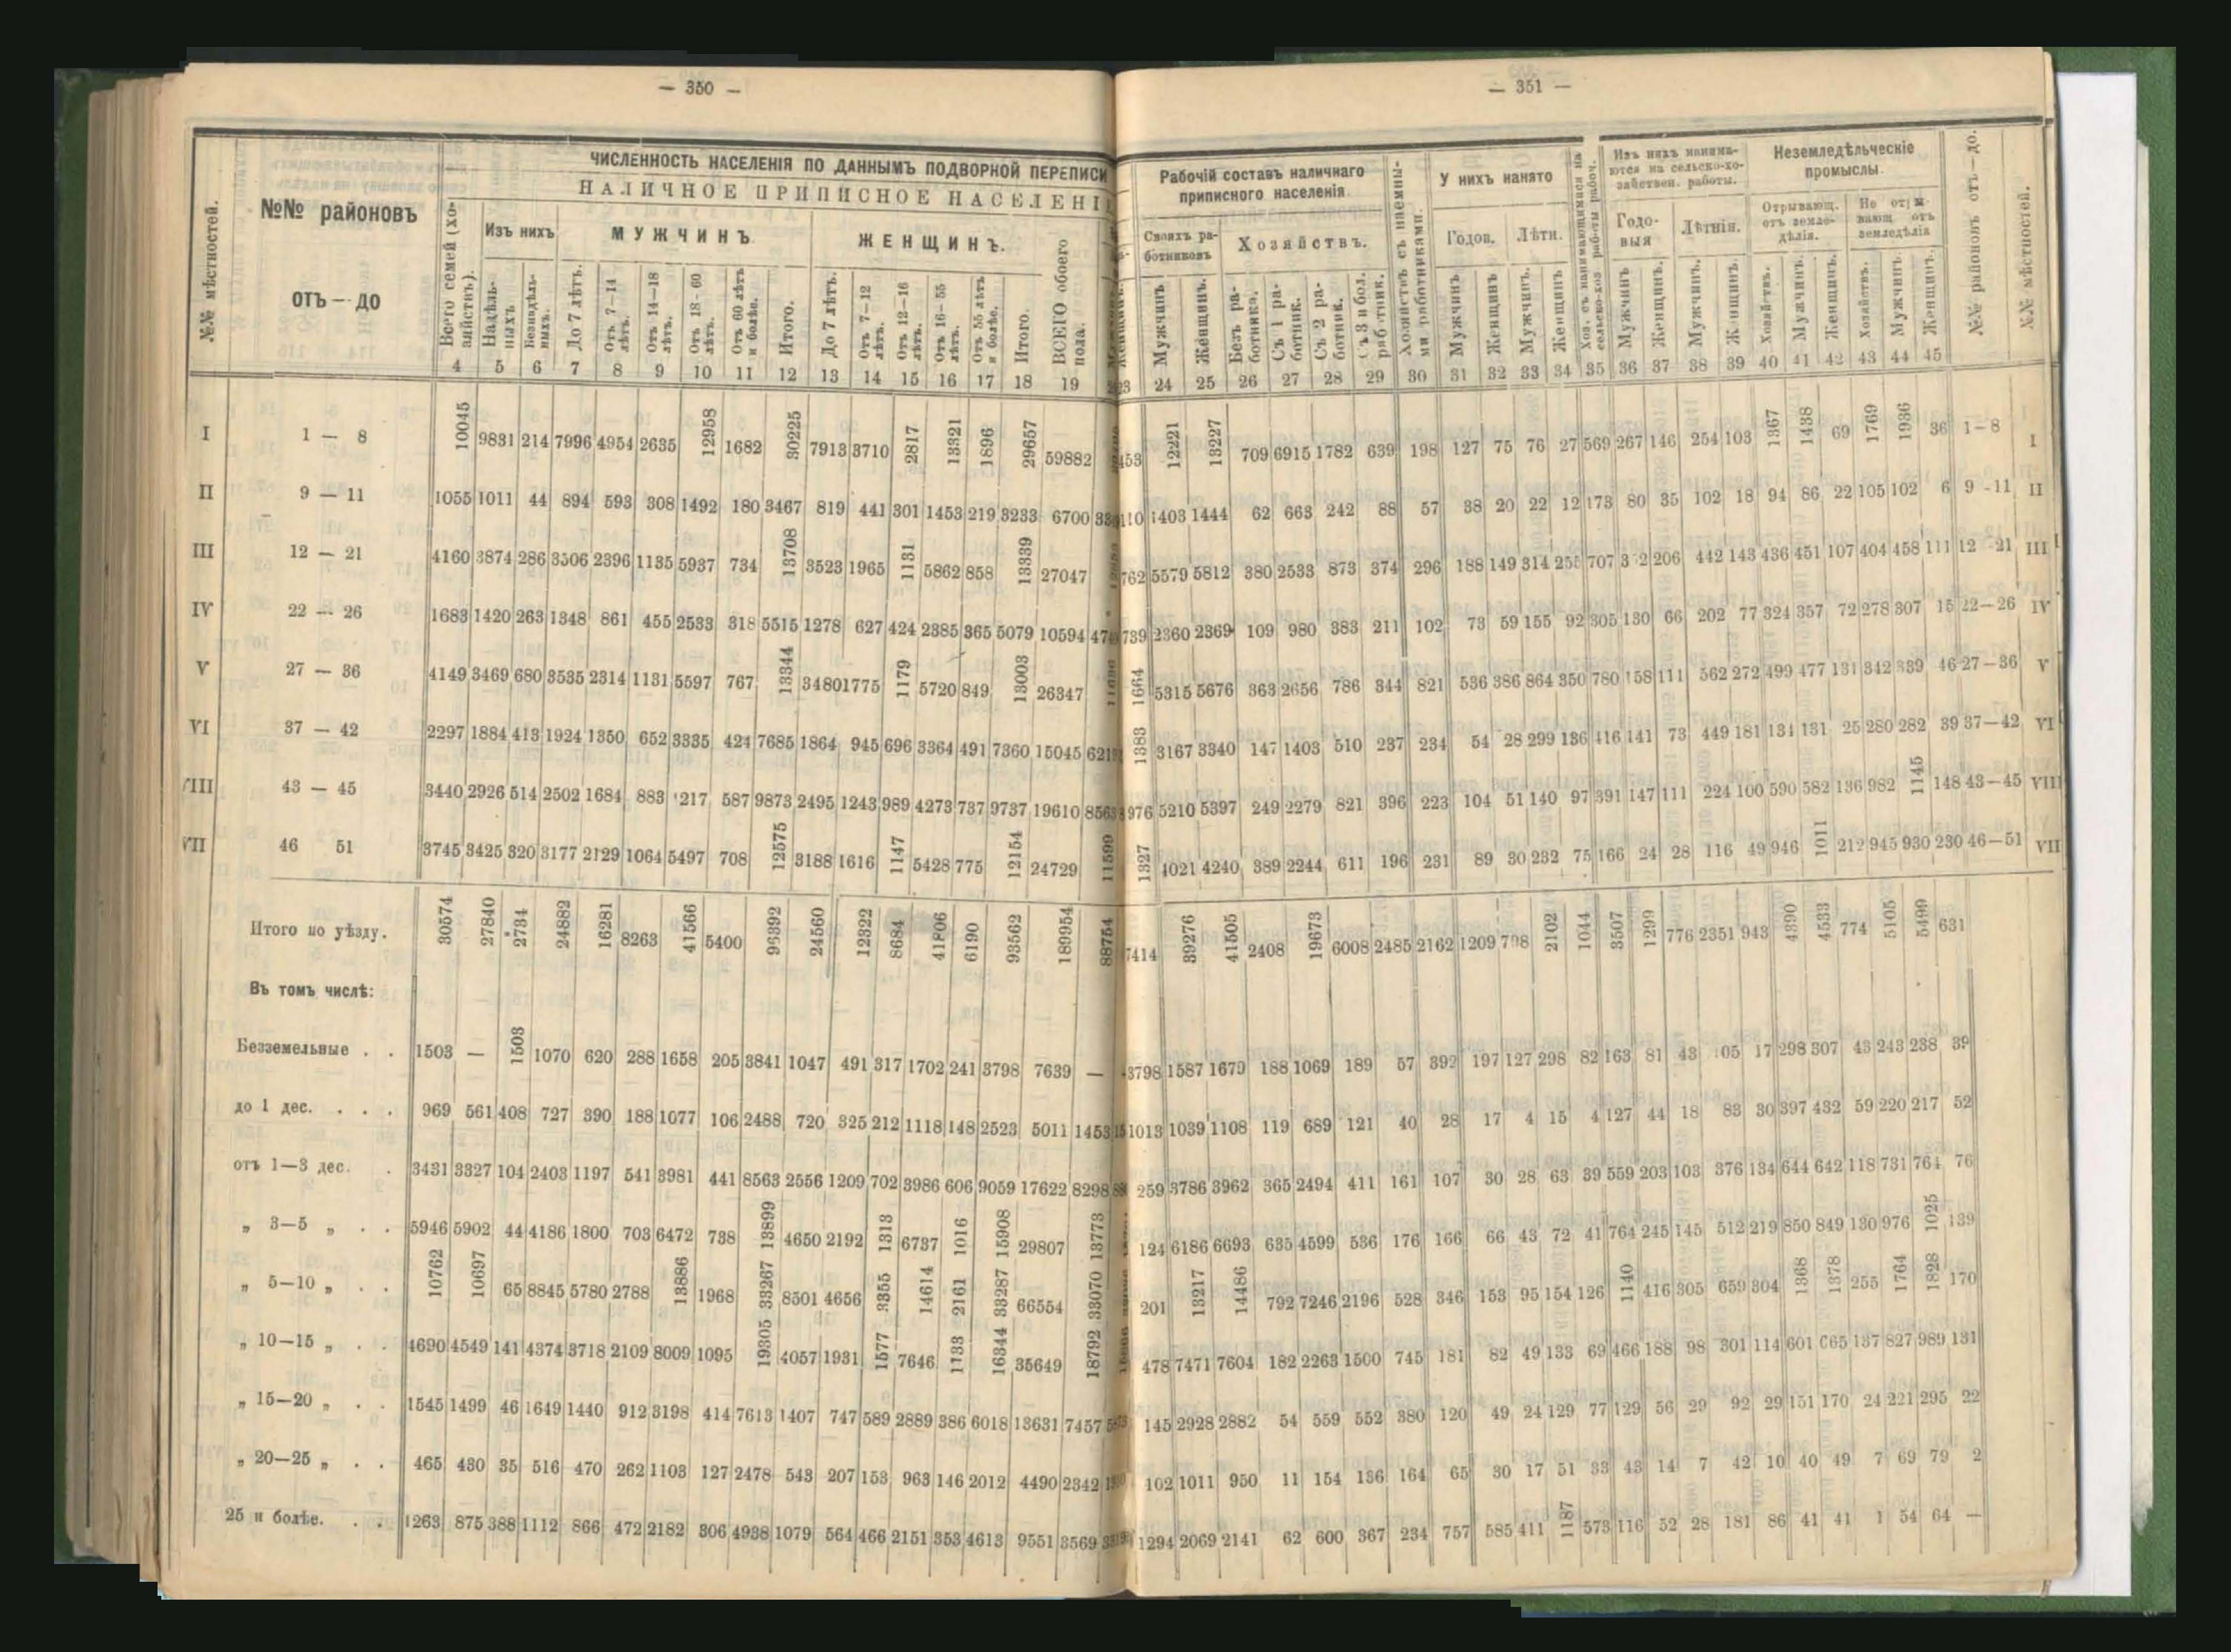 — 350 —
— 351 —
ЧИСЛЕННОСТЬ НАСЕЛЕНІЯ ПО ДАННЫМЪ ПОДВОРНОЙ ПЕРЕПИСИ
НАЛИЧНОЕ ПРИПИСНОЕ
№№ мѣстностей.
№№ районовъ
отъ — до
Всего семей (хозяйствъ).
Изъ нихъ
Надѣльныхъ
Безнадѣльныхъ.
МУЖЧИНЪ
До 7 лѣтъ.
Отъ 7—14 лѣтъ.
Отъ 14—18 лѣтъ.
Отъ 18-60 лѣтъ.
Отъ 60 лѣтъ и болѣе.
Итого.
ЖЕНЩИНЪ.
До 7 лѣтъ.
Отъ 7—12 лѣтъ.
Отъ 12—16 лѣтъ.
Отъ 16—55 лѣтъ.
Отъ 55 лѣтъ и болѣе.
Итого.
ВСЕГО обоего пола.
4 5 6 7 8 9 10 11 12 13 14 15 16 17 18 19
I 1 — 8 10045 9831 214 7996 4954 2635 12958 1682 30225 7913 3710 2817 13321 1896 29657 59882
II 9 — 11 1055 1011 44 894 593 308 1492 180 3467 819 441 301 1453 219 3233 6700
III 12 — 21 4160 3874 286 3506 2396 1135 5937 734 13708 3523 1965 1131 5862 858 13339 27047
IV 22 — 26 1683 1420 263 1348 861 455 2533 318 5515 1278 627 424 2385 365 5079 10594
V 27 — 36 4149 3469 680 3535 2314 1131 5597 767 13344 3480 1775 1179 5720 849 13003 26347
VI 37 — 42 2297 1884 413 1924 1350 652 3335 424 7685 1864 945 696 3364 491 7360 15045
43 — 45 3440 2926 514 2502 1684 883 587 9873 2495 1243 989 4273 737 9737 19610
46 51 3745 3425 320 3177 2129 1064 5497 708 12575 3188 1616 1147 5428 775 12154 24729 11599
Итого по уѣзду. 30574 27840 2734 24882 16281 8263 41566 5400 96392 24560 12322 8684 41806 6190 93562 189954 88754
Въ томъ числѣ:
Безземельные . . 1503 — 1503 1070 620 288 1658 205 3841 1047 491 317 1702 241 3798 7639 —
до 1 дес. . . . 969 561 408 727 390 188 1077 106 2488 720 325 212 1118 148 2523 5011 1453
отъ 1—3 дес. . 3431 3327 104 2403 1197 541 3981 441 8563 2556 1209 702 3986 606 9059 17622 8298
„ 3—5 „ . . 5946 5902 44 4186 1800 703 6472 738 13899 4650 2192 1313 6737 1016 15908 29807 13773
„ 5—10 „ . . 10762 10697 65 8845 5780 2788 13886 1968 33267 8501 4656 3355 14614 2161 33287 66554 33070
„ 10—15 „ . . 4690 4549 141 4374 3718 2109 8009 1095 19305 4057 1931 1577 7646 1133 16344 35649 18792
„ 15—20 „ . . 1545 1499 46 1649 1440 912 3198 414 7613 1407 747 589 2889 386 6018 13631 7457
„ 20—25 „ . . 465 430 35 516 470 262 1103 127 2478 543 207 153 963 146 2012 4490 2342
25 и болѣе. . . 1263 875 388 1112 866 472 2182 306 4938 1079 564 466 2151 353 4613 9551 3569
Рабочій составъ наличнаго приписного населенія.
Своихъ работниковъ
Мужчинъ
Женщинъ.
Хозяйствъ.
Безъ работника.
Съ 1 работник.
Съ 2 работник.
Съ 3 и бол. работник.
Хозяйствъ съ наемными работниками.
У нихъ нанято
Годов.
Мужчинъ
Женщинъ
Лѣтн.
Мужчинъ.
Женщинъ
Хоз. съ нанимающимися на сельско-хоз. работы рабоч.
Изъ нихъ нанимаются на сельско-хозяйствен. работы.
Годовыя
Мужчинъ
Женщинъ.
Лѣтнія.
Мужчинъ.
Женщинъ.
Неземледѣльческіе промыслы.
Отрывающ. отъ земледѣлія.
Хозяйствъ.
Мужчинъ.
Женщинъ.
Не отрывающ отъ земледѣлія
Хозяйствъ.
Мужчинъ
Женщинъ.
№№ районовъ отъ—до.
№№ мѣстностей.
24 25 26 27 28 29 30 31 32 33 34 35 36 37 38 39 40 41 42 43 44 45
12221 13227 709 6915 1782 639 198 127 75 76 27 569 267 146 254 103 1367 1438 69 1769 1936 36 1—8 I
1403 1444 62 663 242 88 57 38 20 22 12 173 80 35 102 18 94 86 22 105 102 6 9-11 II
762 5579 5812 380 2533 873 374 296 188 149 314 255 707 206 442 143 436 451 107 404 458 111 12-21 III
739 2360 2369 109 980 383 211 102 73 59 155 92 305 130 66 202 77 324 357 72 278 307 15 22—26 IV
1664 5315 5676 363 2656 786 344 821 536 386 864 350 780 158 111 562 272 499 477 131 342 339 46 27—36 V
1383 3167 3340 147 1403 510 237 234 54 28 299 136 416 141 73 449 181 131 131 25 280 282 39 37—42 VI
976 5210 5397 249 2279 821 396 223 104 51 140 97 391 147 111 224 100 590 582 136 982 1145 148 43—45 VIII
1327 4021 4240 389 2244 611 196 231 89 30 232 75 166 24 28 116 49 946 1011 212 945 930 230 46—51 VII
7414 39276 41505 2408 19673 6008 2485 2162 1209 798 2102 1044 3507 1299 776 2351 943 4390 4533 774 5105 5499 631
3798 1587 1679 188 1069 189 57 392 197 127 298 82 163 81 43 105 17 298 307 43 243 238 39
1013 1039 1108 119 689 121 40 28 17 4 15 4 127 44 18 83 30 397 432 59 220 217 52
259 3786 3962 365 2494 411 161 107 30 28 63 39 559 203 103 376 134 644 642 118 731 764 76
124 6186 6693 635 4599 536 176 166 66 43 72 41 764 245 145 512 219 850 849 130 976 1025 139
201 13217 14486 792 7246 2196 528 346 153 95 154 126 1140 416 305 659 304 1368 1378 255 1764 1828 170
478 7471 7604 182 2263 1500 745 181 82 49 133 69 466 188 98 301 114 601 665 137 827 989 131
145 2928 2882 54 559 552 380 120 49 24 129 77 129 56 29 92 29 151 170 24 221 295 22
102 1011 950 11 154 136 164 65 30 17 51 33 43 14 7 42 10 40 49 7 69 79 2
1294 2069 2141 62 600 367 234 757 585 411 1187 573 116 52 28 181 86 41 41 1 54 64 —